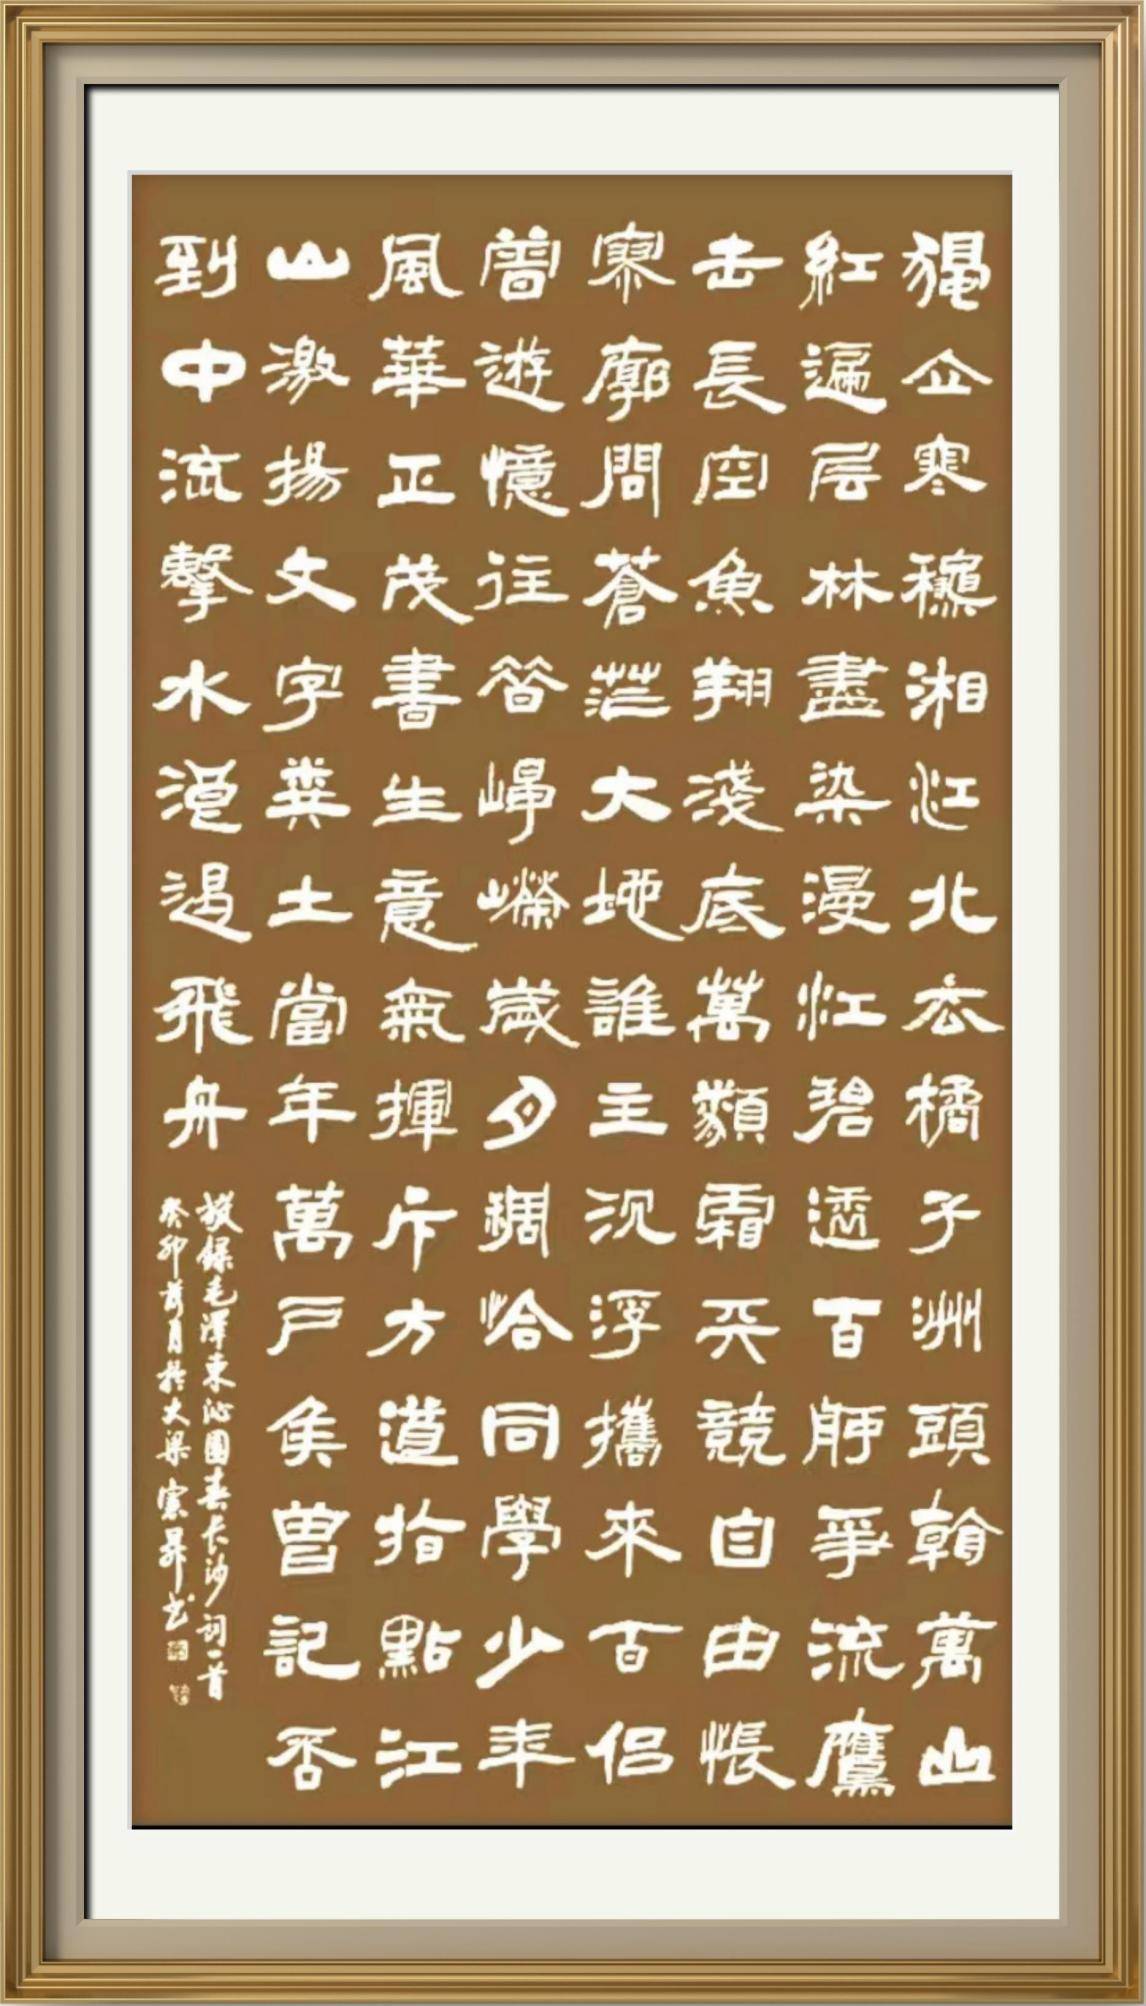 獨立寒穐湘江北去橘子洲頭看萬山
紅遍层林盡染漫江碧透百舸爭流鷹
击長空魚翔淺底萬類霜天競自由悵
寥廓問蒼茫大地誰主沉浮攜來百侶
曾遊憶往昔崢嶸歲月稠恰同學少年
風華正茂書生意氣揮斥方遒指點江
山激揚文字糞土當年萬戶侯曾記否
到中流擊水浪遏飛舟
敬錄毛澤東沁園春长沙詞一首
癸卯月於大梁宪昇书